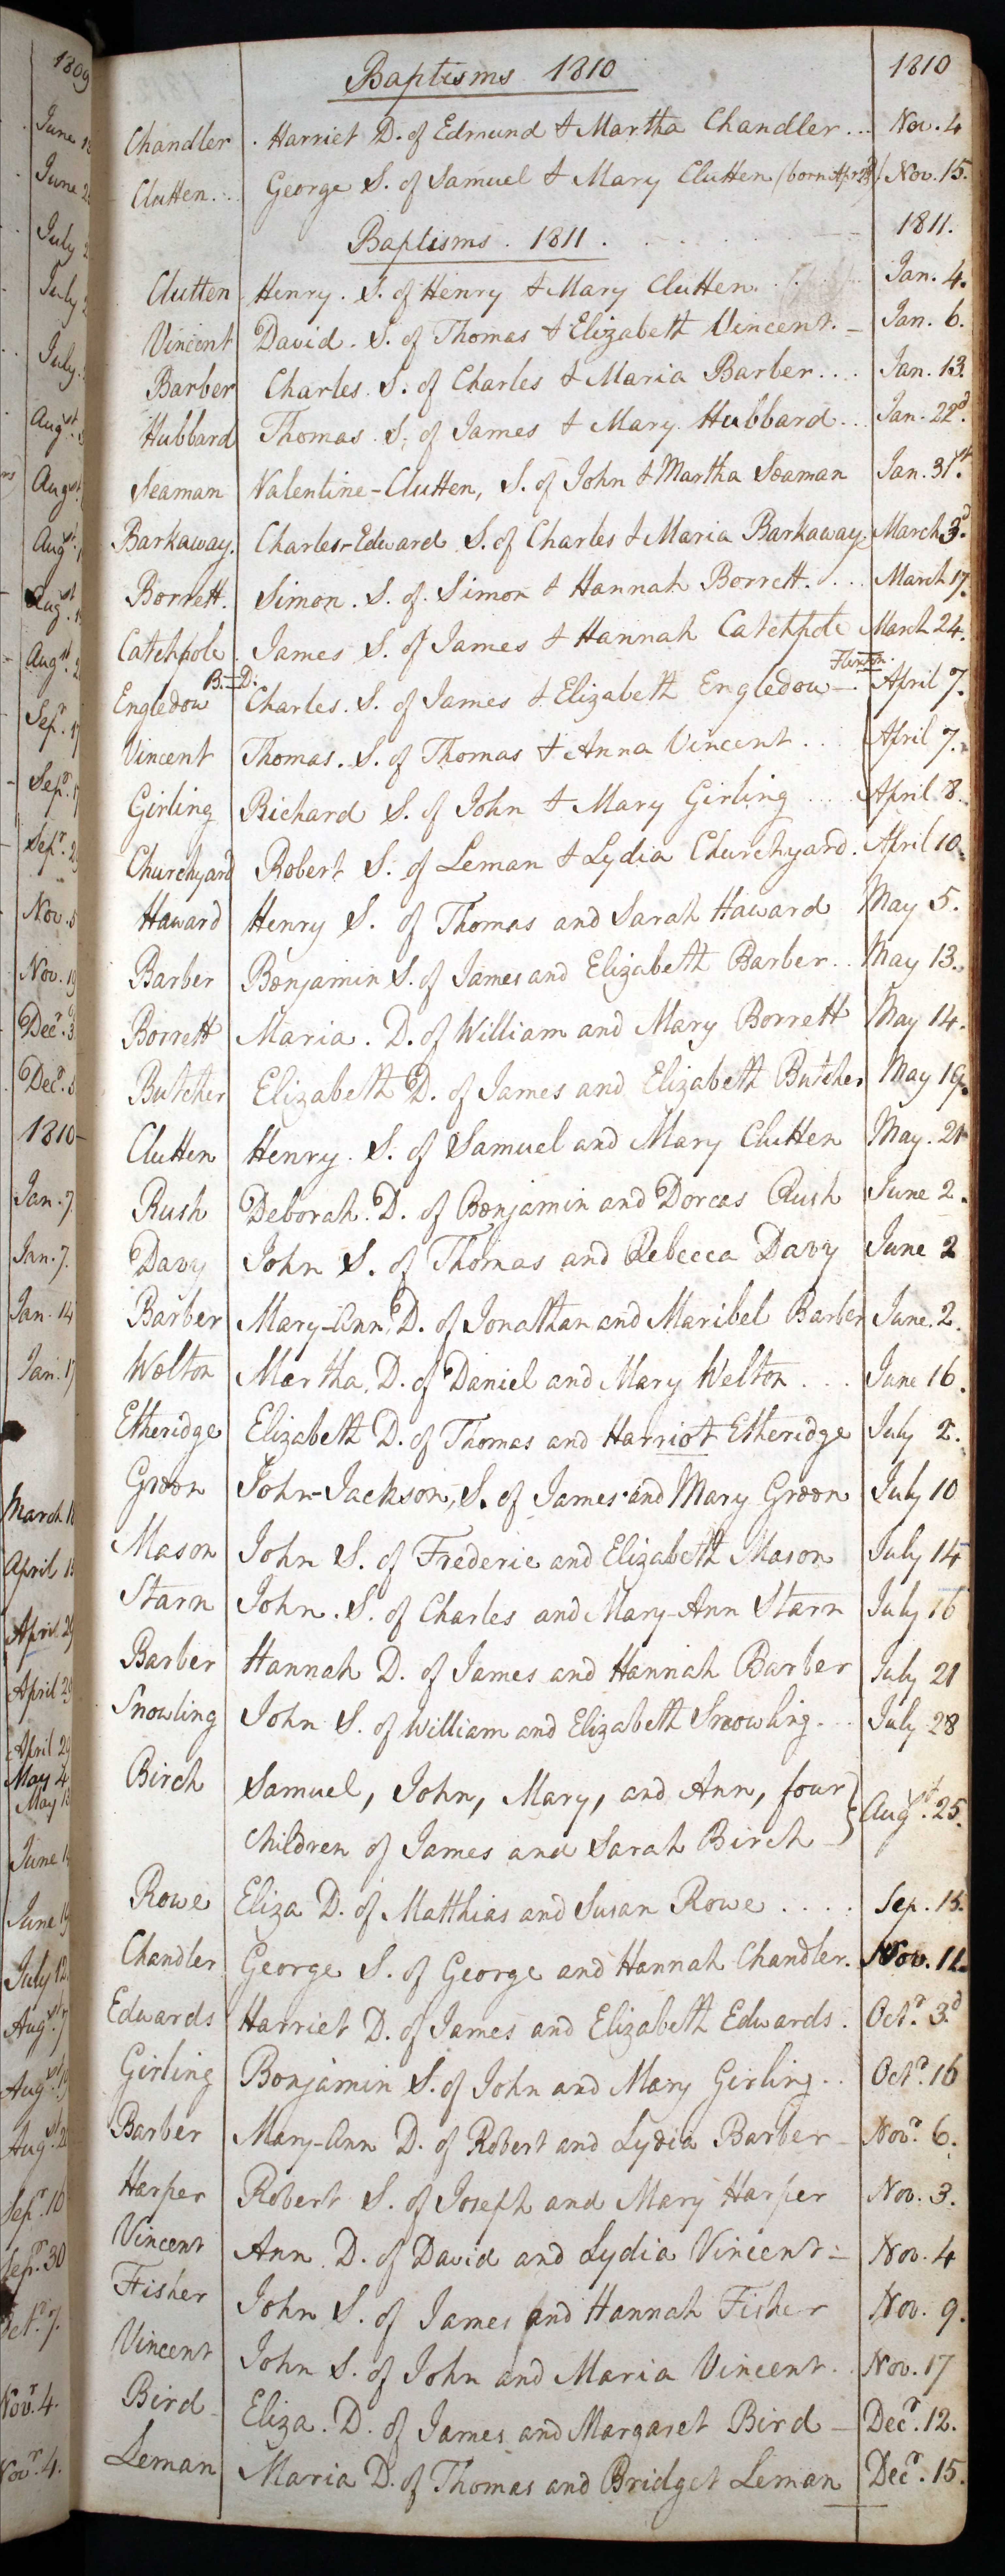 1809
June
June
July
July
July
Augst.
Augst.
Augst.
Augst.
Augst.
Sepr.
Sepr.
Sepr.
Nov.
Nov. 19
Decr. 3
Decr.
1810
Jan. 7.
Jan. 7.
Jan. 14
Jan. 17
March
April
April 29
April 29
April 29
May 4
May
June
June
July 12
Augst. 7
Augst.
Augst.
Sepr. 10
Sepr. 30
Octr. 7.
Novr. 4.
Novr. 4.
Baptisms 1810 1810
Chandler . Harriet D. of Edmund & Martha Chandler ... Nov. 4
Clutten. .. George S. of Samuel & Mary Clutten (born Apr ) Nov. 15.
Baptisms . 1811 . 1811.
Clutten Henry. S. of Henry & Mary Clutten. Jan. 4.
Vincent David. S. of Thomas & Elizabeth Vincent. – Jan. 6.
Barber Charles. S. of Charles & Maria Barber .... Jan. 13.
Hubbard Thomas. S. of James & Mary Hubbard ... Jan. 22d.
Seaman Valentine-Clutten, S. of John & Martha Seaman Jan. 31st.
Barkaway. Charles-Edward S. of Charles & Maria Barkaway. March 3d.
Borrett. Simon. S. of Simon & Hannah Borrett. ... March 17.
Catchpole . James S. of James & Hannah Catchpole March 24.
Engledow B.—D. Charles. S. of James & Elizabeth Engledow —. Flixton. April 7.
Vincent Thomas. S. of Thomas & Anna Vincent ... April 7.
Girling Richard S. of John & Mary Girling .... April 8.
Churchyard Robert S. of Leman & Lydia Churchyard. April 10.
Haward Henry S. of Thomas and Sarah Haward May 5.
Barber Benjamin S. of James and Elizabeth Barber .. May 13.
Borrett Maria. D. of William and Mary Borrett May 14.
Butcher Elizabeth D. of James and Elizabeth Butcher May 19.
Clutten Henry. S. of Samuel and Mary Clutten May. 21
Rush Deborah. D. of Benjamin and Dorcas Rush June 2.
Davy John S. of Thomas and Rebecca Davy June 2
Barber Mary-Ann, D. of Jonathan and Maribel Barber June. 2.
Welton Martha, D. of Daniel and Mary Welton ... June 16.
Etheridge Elizabeth D. of Thomas and Harriot Etheridge July 2.
Green John-Jackson, S. of James and Mary Green July 10
Mason John S. of Frederic and Elizabeth Mason July 14
Starn John. S. of Charles and Mary-Ann Starn July 16
Barber Hannah D. of James and Hannah Barber July 21
Snowling John S. of William and Elizabeth Snowling ... July 28
Birch Samuel, John, Mary, and Ann, four
Children of James and Sarah Birch – } Augst. 25.
Rowe Eliza D. of Matthias and Susan Rowe .... Sep. 15.
Chandler George S. of George and Hannah Chandler. Nov. 11.
Edwards Harriet D. of James and Elizabeth Edwards. Octr. 3d.
Girling Benjamin S. of John and Mary Girling .. Octr. 16
Barber Mary-Ann D. of Robert and Lydia Barber – Novr. 6.
Harper Robert S. of Joseph and Mary Harper Nov. 3.
Vincent Ann. D. of David and Lydia Vincent – Nov. 4
Fisher John S. of James and Hannah Fisher Nov. 9.
Vincent John S. of John and Maria Vincent. . Nov. 17
Bird Eliza. D. of James and Margaret Bird – Decr. 12.
Leman Maria D. of Thomas and Bridget Leman Decr. 15.